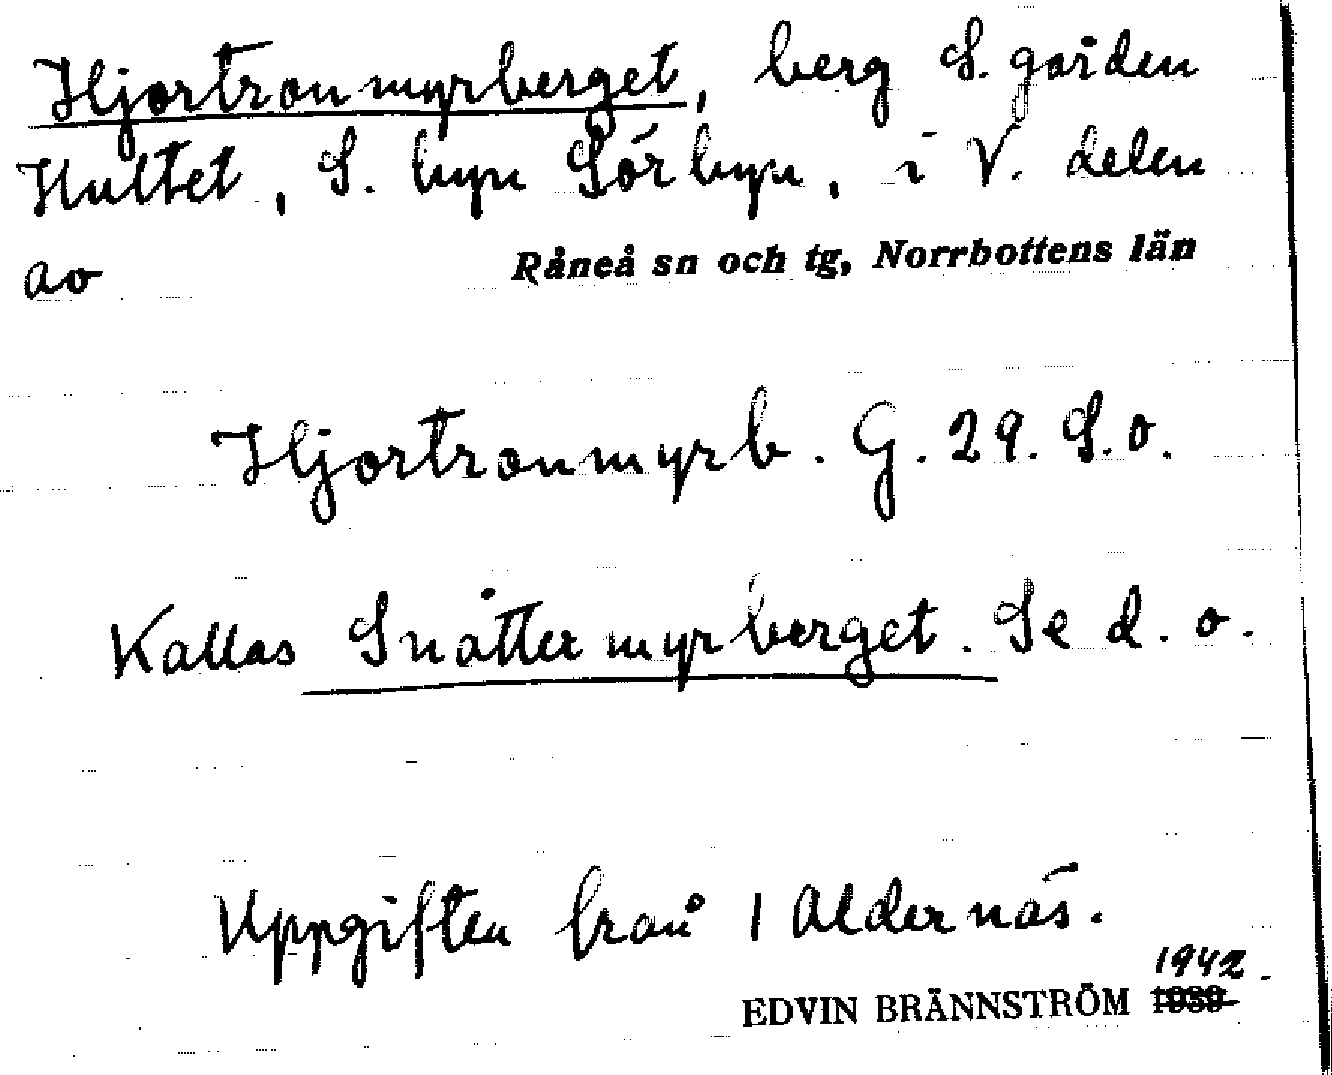 Hjortronmyrberget, berg S. gården
Hultet, S. byn Sörbyn, i V. delen
av Råneå sn och tg, Norrbottens län
Hjortronmyrb. G. 29. S.o.
Kallas Snåttermyrberget. Se d. o.
Uppgiften från 1 Aldernäs.
1942
EDVIN BRÄNNSTRÖM 1939